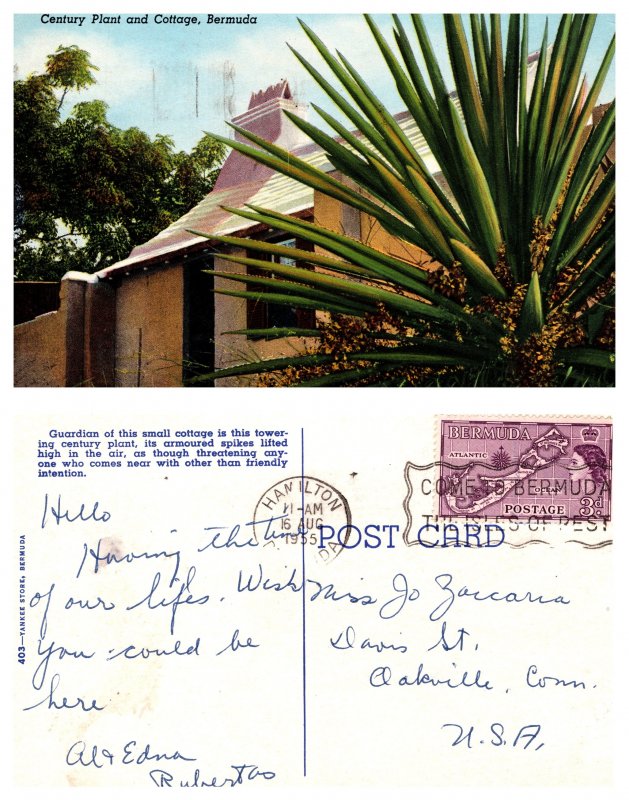 Century Plant and Cottage, Bermuda
Guardian of this small cottage is this tower-
ing century plant, its armoured spikes lifted
high in the air, as though threatening any-
one who comes near with other than friendly
intention.
403—YANKEE STORE, BERMUDA
HAMILTON
11-AM
16 AUG
1955
BERMUDA
ATLANTIC
OCEAN
3d
POSTAGE
COME TO BERMUDA
THE ISLES OF REST
POST CARD
Hello
Having the time
of our lifes. Wish
you could be
here
Al & Edna
Miss Jo Zaccaria
Davis St.
Oakville, Conn.
U.S.A.